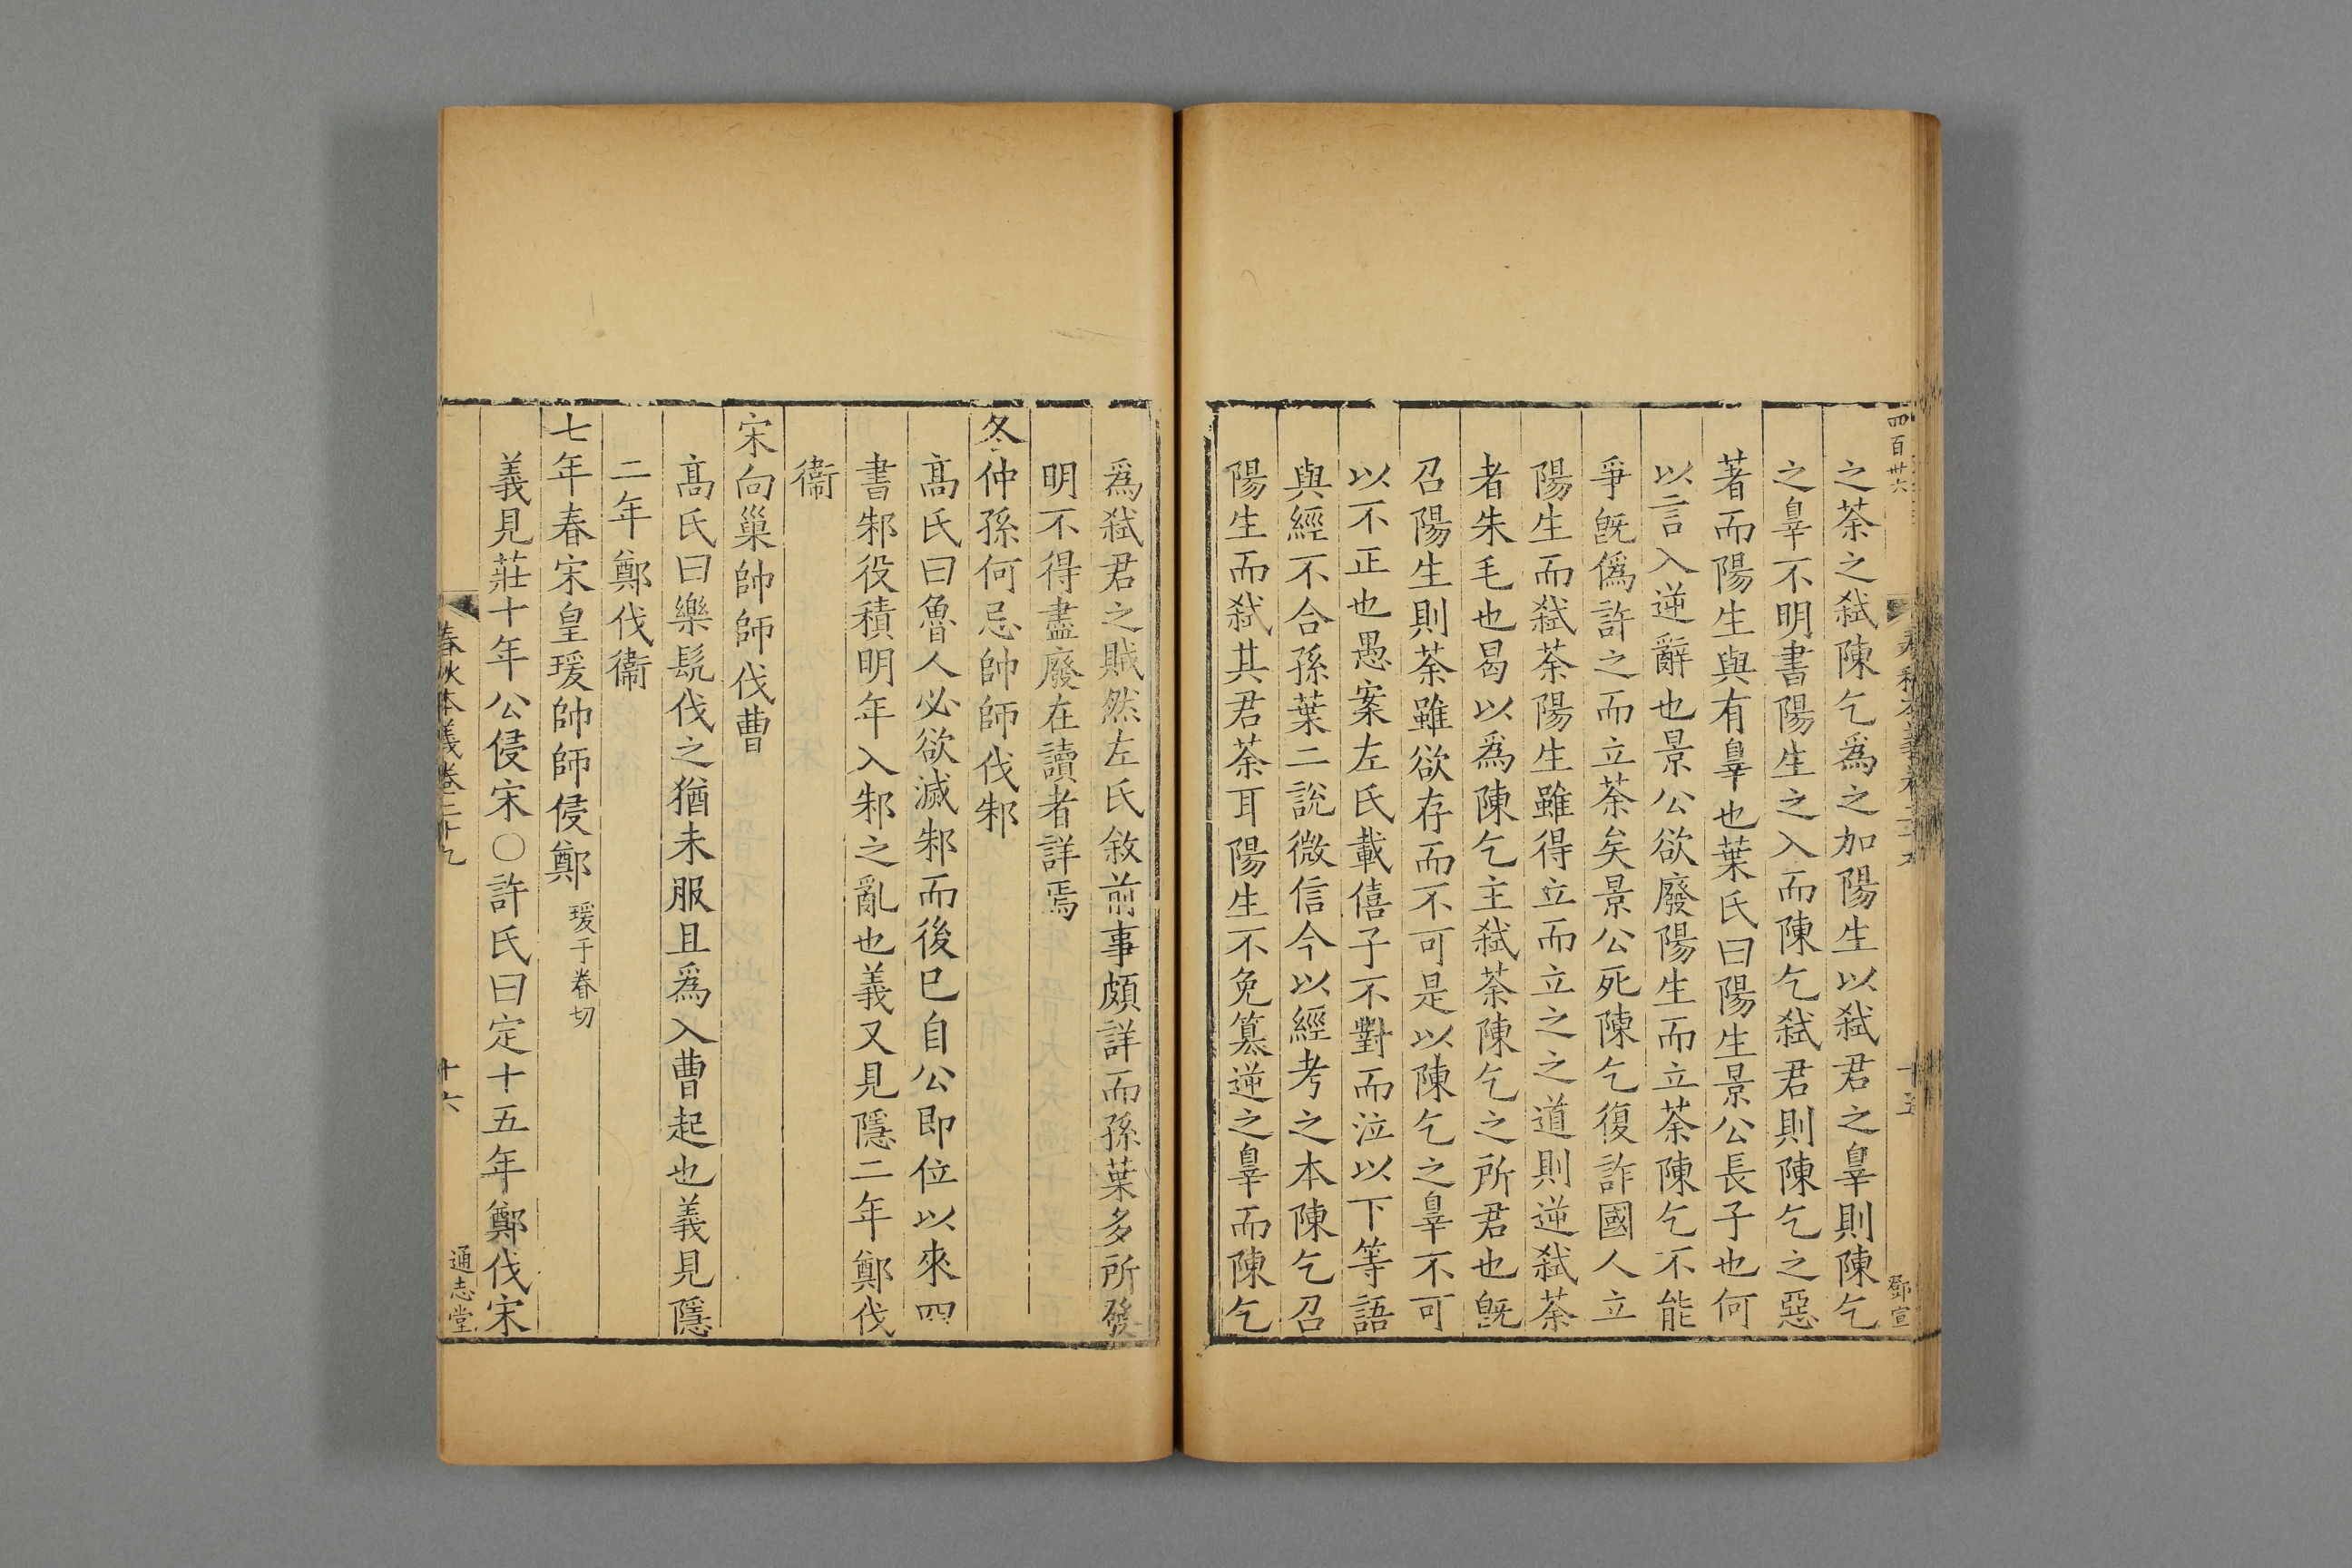 四百卅六
春秋本義卷二十九
十五
鄧宣
之荼之弑陳乞爲之加陽生以弑君之辠則陳乞
之辠不明書陽生之入而陳乞弑君則陳乞之惡
著而陽生與有辠也葉氏曰陽生景公長子也何
以言入逆辭也景公欲廢陽生而立荼陳乞不能
爭旣僞許之而立荼矣景公死陳乞復詐國人立
陽生而弑荼陽生雖得立而立之之道則逆弑荼
者朱毛也曷以爲陳乞主弑荼陳乞之所君也旣
召陽生則荼雖欲存而不可是以陳乞之辠不可
以不正也愚案左氏載僖子不對而泣以下等語
與經不合孫葉二說微信今以經考之本陳乞召
陽生而弑其君荼耳陽生不免篡逆之辠而陳乞
爲弑君之賊然左氏敘前事頗詳而孫葉多所發
明不得盡廢在讀者詳焉
冬仲孫何忌帥師伐邾
髙氏曰魯人必欲滅邾而後已自公即位以來四
書邾役積明年入邾之亂也義又見隱二年鄭伐
衞
宋向巢帥師伐曹
髙氏曰樂髡伐之猶未服且爲入曹起也義見隱
二年鄭伐衞
七年春宋皇瑗帥師侵鄭 瑗于眷切
義見莊十年公侵宋○許氏曰定十五年鄭伐宋
春秋本義卷二十九
十六
通志堂